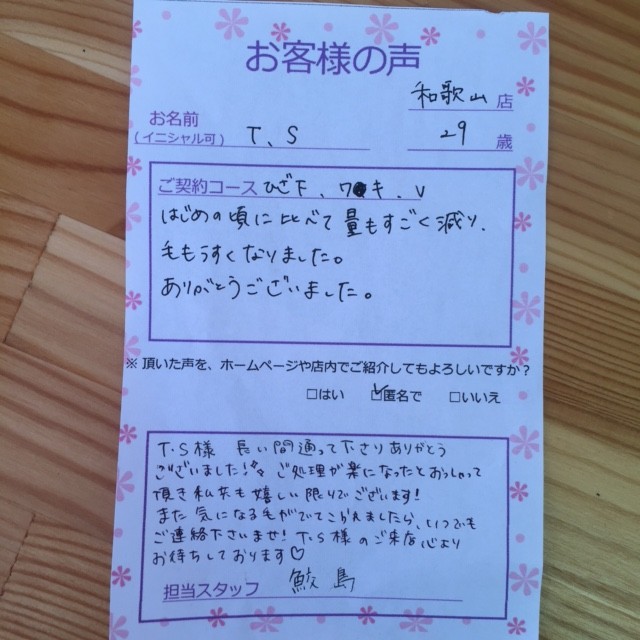 お客様の声
和歌山 店
お名前
(イニシャル可) T、S 29 歳
ご契約コース ひざ下、ワキ、V
はじめの頃に比べて量もすごく減り、
毛もうすくなりました。
ありがとうございました。
※ 頂いた声を、ホームページや店内でご紹介してもよろしいですか？
□はい ☑匿名で □いいえ
T・S様 長い間通って下さりありがとう
ございました！ ご処理が楽になったとおっしゃって
頂き私共も嬉しい限りでございます！
また気になる毛がでてこられましたら、いつでも
ご連絡下さいませ！T・S様のご来店心より
お待ちしております♡
担当スタッフ 鮫島